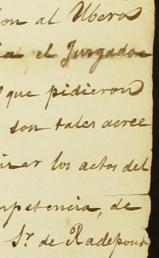 ion al Ubero
ia el Juzgado
que pidieron
son tales
irar los actos del
mpetencia, de
Sr. de Radepont